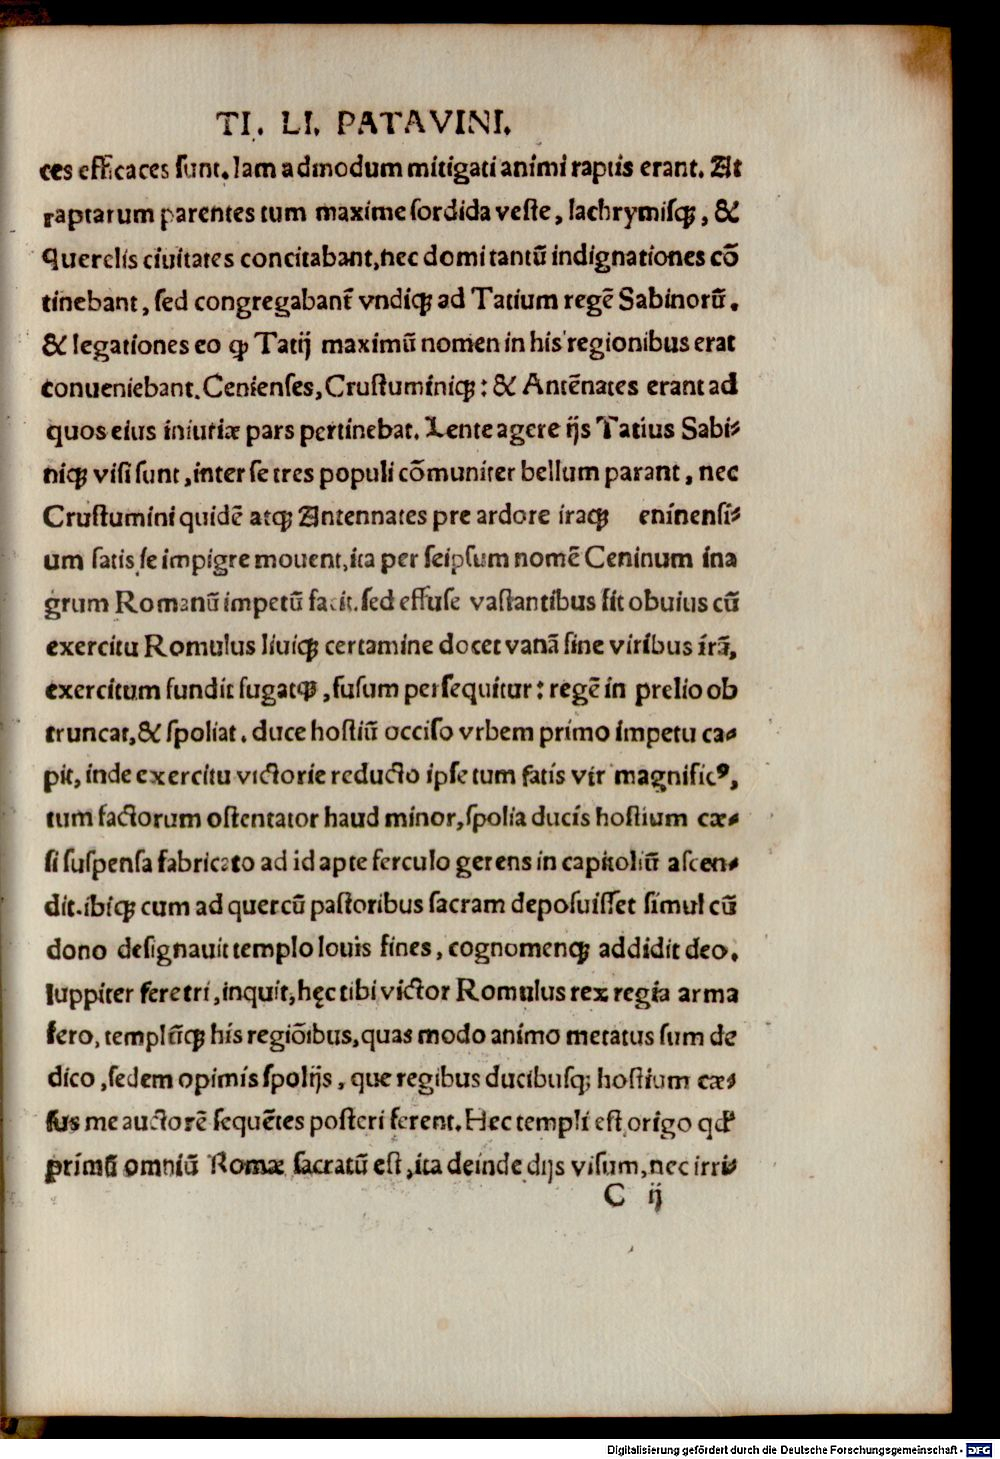 TI. LI. PATAVINI.
ces efficaces sunt. Iam admodum mitigati animi raptis erant. At
raptarum parentes tum maxime sordida veste, lachrymisq;, &
querelis ciuitates concitabant, nec domi tantū indignationes cō
tinebant, sed congregabant̄ vndiq; ad Tatium regē Sabinorū.
& legationes eo ꝙ Tatij maximū nomen in his regionibus erat
conueniebant. Cenienses, Crustuminiq;: & Antēnates erant ad
quos eius iniuriæ pars pertinebat. Lente agere ijs Tatius Sabi-
niq; visi sunt, inter se tres populi cōmuniter bellum parant, nec
Crustumini quidē atq; Antennates pre ardore iraq; eninensi-
um satis se impigre mouent, ita per seipsum nomē Ceninum ina
grum Romanū impetū facit. sed effuse vastantibus fit obuius cū
exercitu Romulus liuiq; certamine docet vanā sine viribus irā,
exercitum fundit fugatq;, fusum persequitur: regē in prelio ob
truncat, & spoliat. duce hostiū occiso vrbem primo impetu ca-
pit, inde exercitu victorie reducto ipse tum fatis vir magnificꝰ,
tum factorum ostentator haud minor, spolia ducis hostium cæ-
si suspensa fabricato ad id apte ferculo gerens in capitoliū ascen-
dit. ibiq; cum ad quercū pastoribus sacram deposuisset simul cū
dono designauit templo Iouis fines, cognomenq; addidit deo.
Iuppiter feretri, inquit, hęc tibi victor Romulus rex regia arma
fero, templūq; his regiōibus, quas modo animo metatus sum de
dico, sedem opimis spolijs, que regibus ducibusq; hostium cæ-
sus me auctorē sequētes posteri ferent. Hec templi est origo qđ
primū omniū Romæ sacratū est, ita deinde dijs visum, nec irri-
C ij
Digitalisierung gefördert durch die Deutsche Forschungsgemeinschaft - DFG